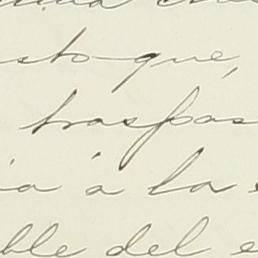 sto que,
traspas
a á la
ble del e